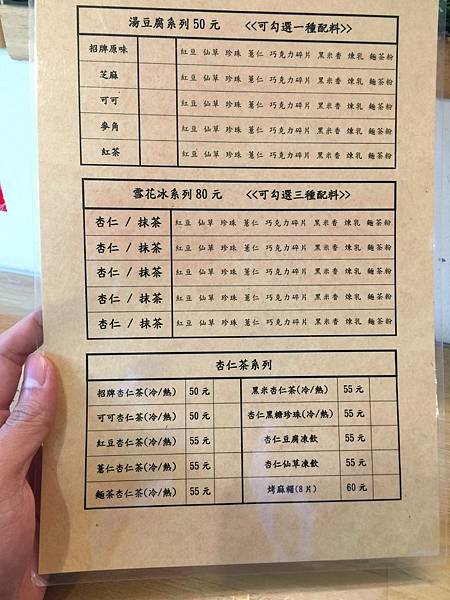 湯豆腐系列50元 <<可勾選一種配料>>
招牌原味 紅豆 仙草 珍珠 薏仁 巧克力碎片 黑米香 煉乳 麵茶粉
芝麻 紅豆 仙草 珍珠 薏仁 巧克力碎片 黑米香 煉乳 麵茶粉
可可 紅豆 仙草 珍珠 薏仁 巧克力碎片 黑米香 煉乳 麵茶粉
麥角 紅豆 仙草 珍珠 薏仁 巧克力碎片 黑米香 煉乳 麵茶粉
紅茶 紅豆 仙草 珍珠 薏仁 巧克力碎片 黑米香 煉乳 麵茶粉
雪花冰系列80元 <<可勾選三種配料>>
杏仁 / 抹茶 紅豆 仙草 珍珠 薏仁 巧克力碎片 黑米香 煉乳 麵茶粉
杏仁 / 抹茶 紅豆 仙草 珍珠 薏仁 巧克力碎片 黑米香 煉乳 麵茶粉
杏仁 / 抹茶 紅豆 仙草 珍珠 薏仁 巧克力碎片 黑米香 煉乳 麵茶粉
杏仁 / 抹茶 紅豆 仙草 珍珠 薏仁 巧克力碎片 黑米香 煉乳 麵茶粉
杏仁 / 抹茶 紅豆 仙草 珍珠 薏仁 巧克力碎片 黑米香 煉乳 麵茶粉
杏仁茶系列
招牌杏仁茶(冷/熱) 50元 黑米杏仁茶(冷/熱) 55元
可可杏仁茶(冷/熱) 50元 杏仁黑糖珍珠(冷/熱) 55元
紅豆杏仁茶(冷/熱) 55元 杏仁豆腐凍飲 55元
薏仁杏仁茶(冷/熱) 55元 杏仁仙草凍飲 55元
麵茶杏仁茶(冷/熱) 55元 烤麻糬(8片) 60元